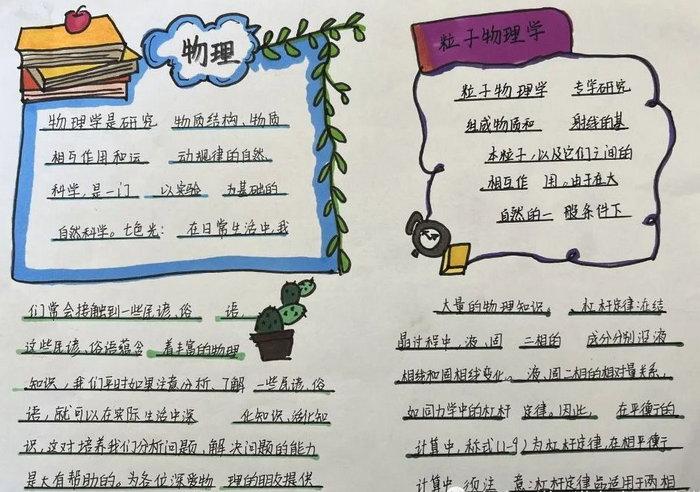 物理
物理学是研究 物质结构、物质
相互作用和运 动规律的自然
科学,是一门 以实验 为基础的
自然科学。七色光: 在日常生活中,我
们常会接触到一些民谚、俗 语
这些民谚、俗语蕴含 着丰富的物理
知识,我们平时如果注意分析、了解 一些民谚、俗
语,就可以在实际生活中深 化知识、活化知
识,这对培养我们分析问题、解决问题的能力
是大有帮助的。为各位深爱物 理的朋友提供
粒子物理学
粒子物理学 专学研究
组成物质和 射线的基
本粒子,以及它们之间的
相互作 用。由于在大
自然的一 般条件下
大量的物理知识。 杠杆定律:在结
晶过程中,液、固 二相的 成分分别沿液
相线和固相线变化。 液、固二相的相对量关系,
如同力学中的杠杆 定律。因此, 在平衡的
计算中,称式(1-9)为杠杆定律,在相平衡
计算中 须注 意:杠杆定律 适用于两相